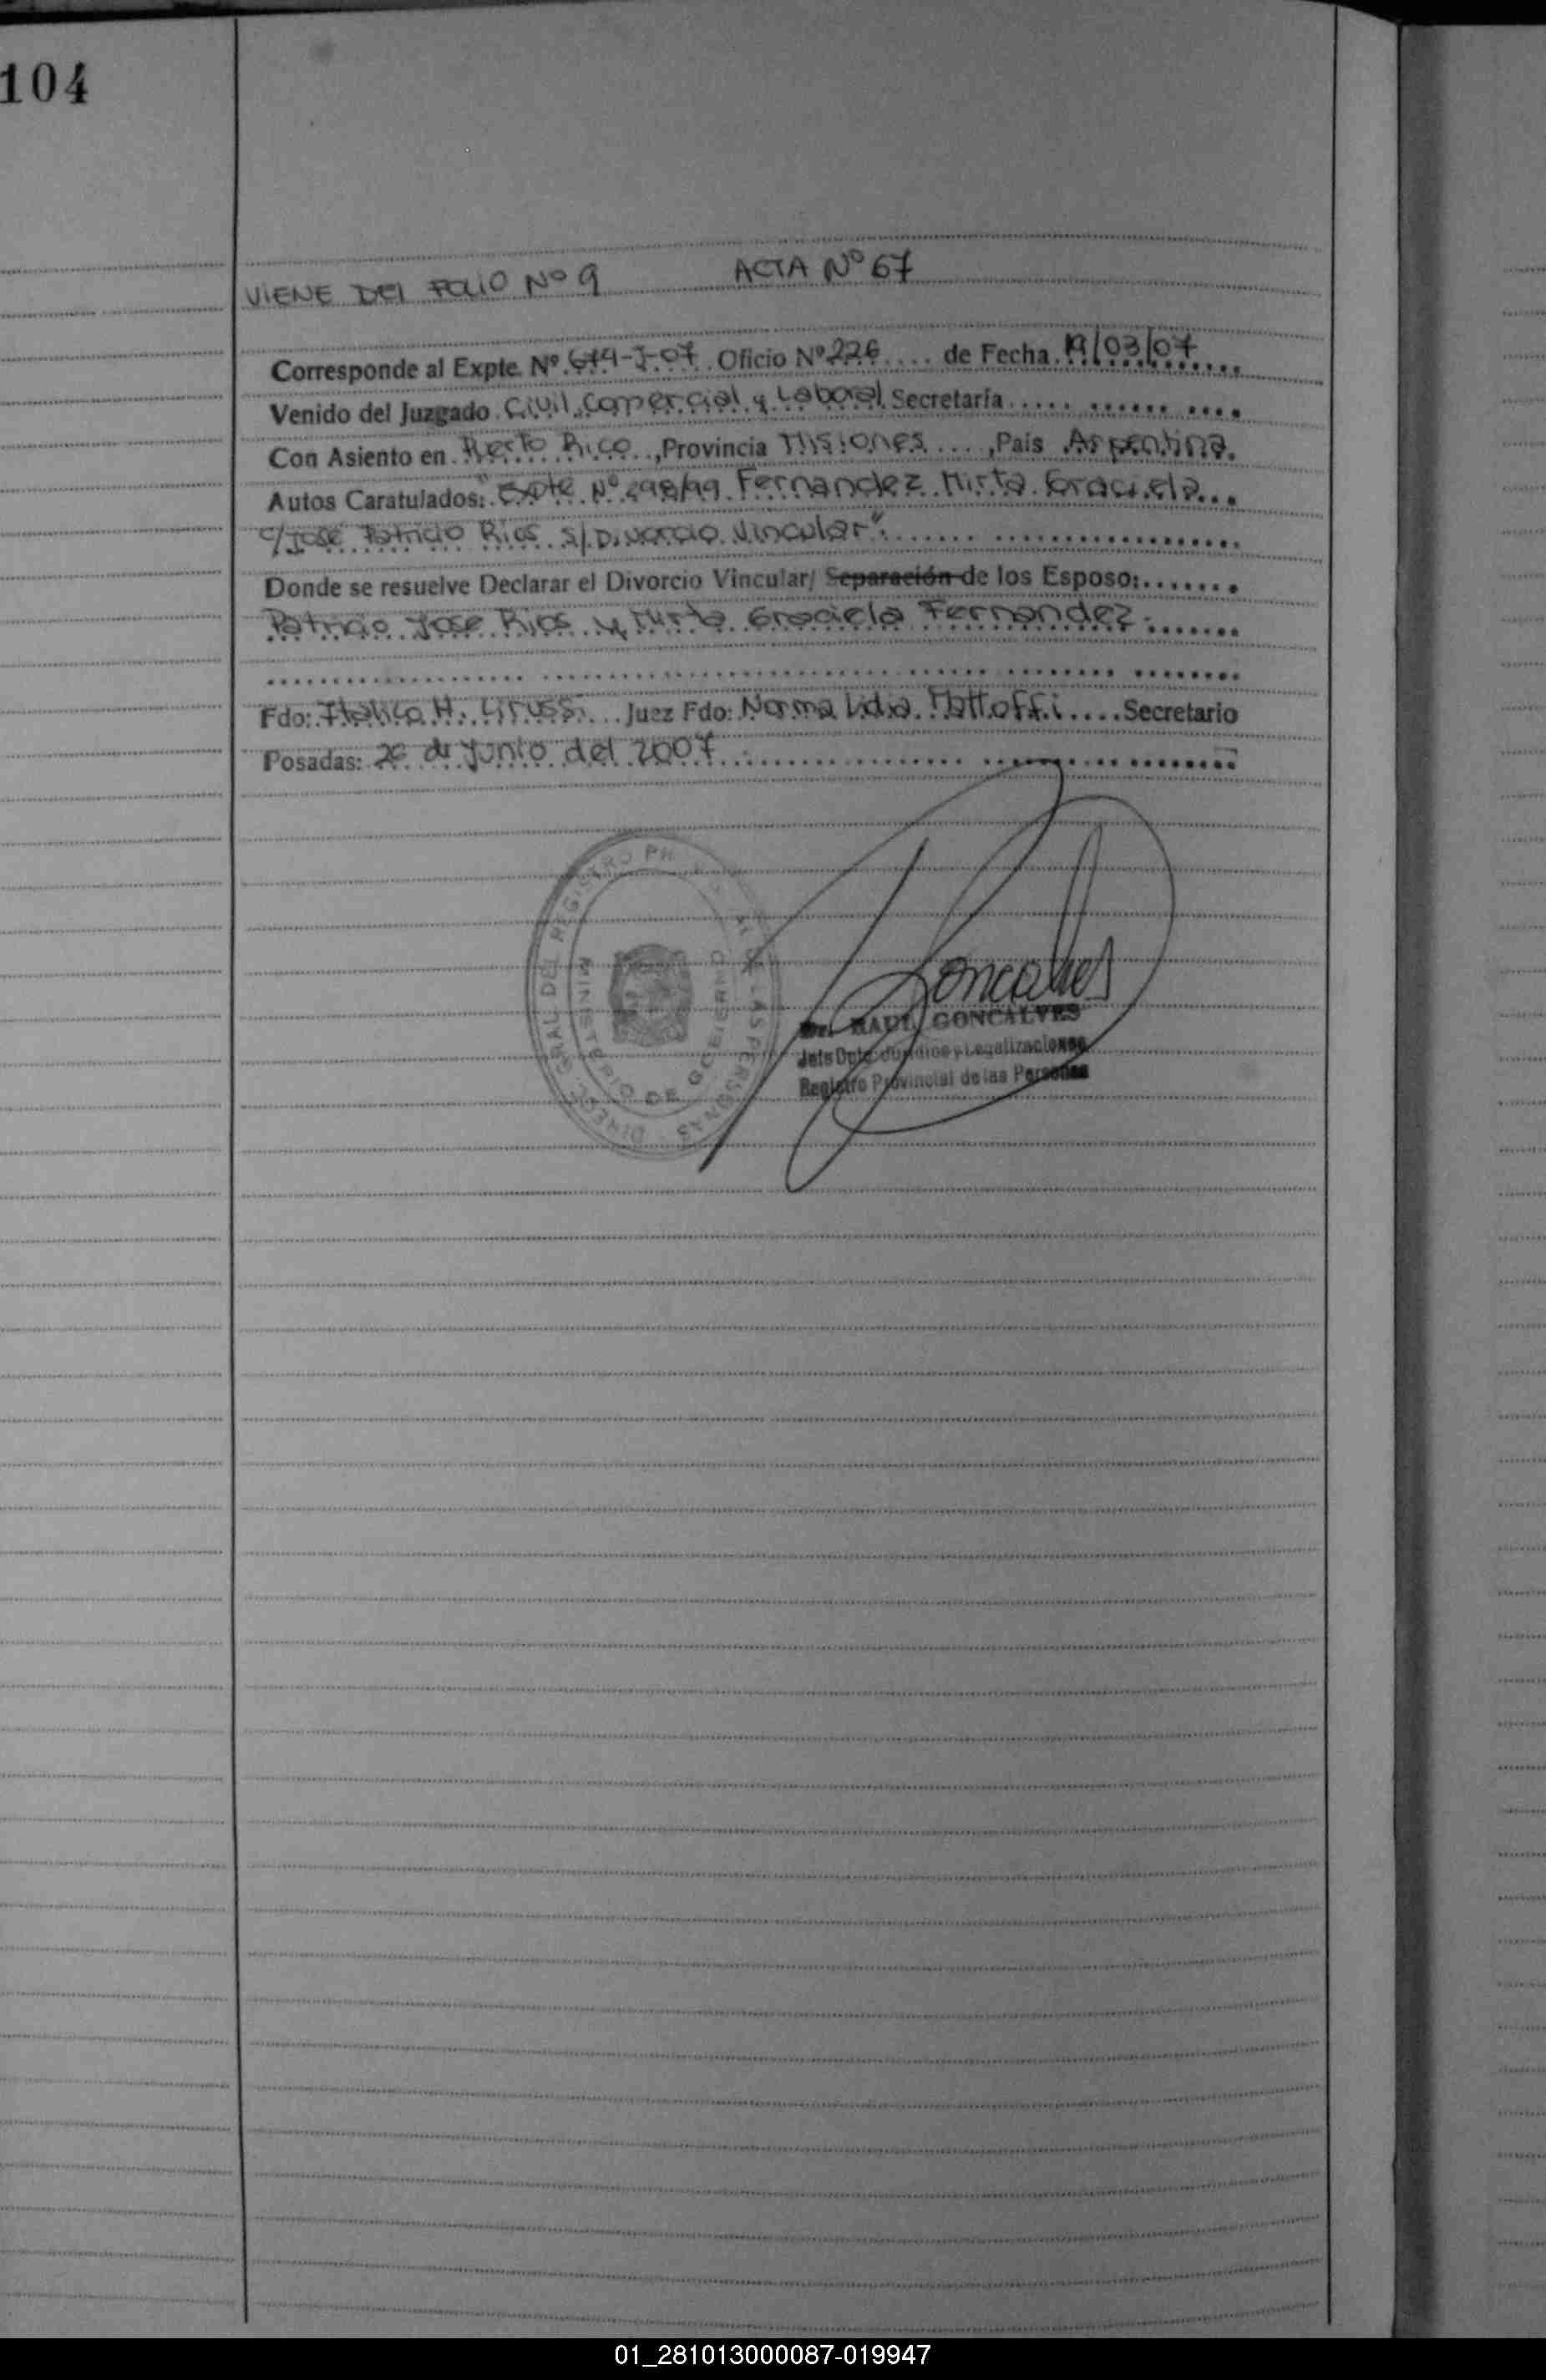 104
VIENE DEL FOLIO Nº 9 ACTA Nº 67
Corresponde al Expte. Nº. 674-J-07. Oficio Nº 226 .... de Fecha. 19/03/07
Venido del Juzgado. Civil, Comercial y Laboral. Secretaría..... ...... ....
Con Asiento en. Puerto Rico..,Provincia Misiones ...,País Argentina.
Autos Caratulados: "Expte Nº 298/99 Fernandez Mirta Graciela...
c/ José Patricio Rios s/ Divorcio Vincular".
Donde se resuelve Declarar el Divorcio Vincular/ Separación de los Esposo:.......
Patricio José Rios y Mirta Graciela Fernandez.
Fdo: Italico H. Grussi... Juez Fdo: Norma Lidia .... Secretario
Posadas: 26 de Junio del 2007.
DIRECC. GRAL DEL REGISTRO DE LAS PERSONAS
MINISTERIO DE GOBIERNO
Goncalves
Dr. RAUL GONCALVES
Jefe Dpto. Jurídico y Legalizaciones
Registro Provincial de las Personas
01_281013000087-019947